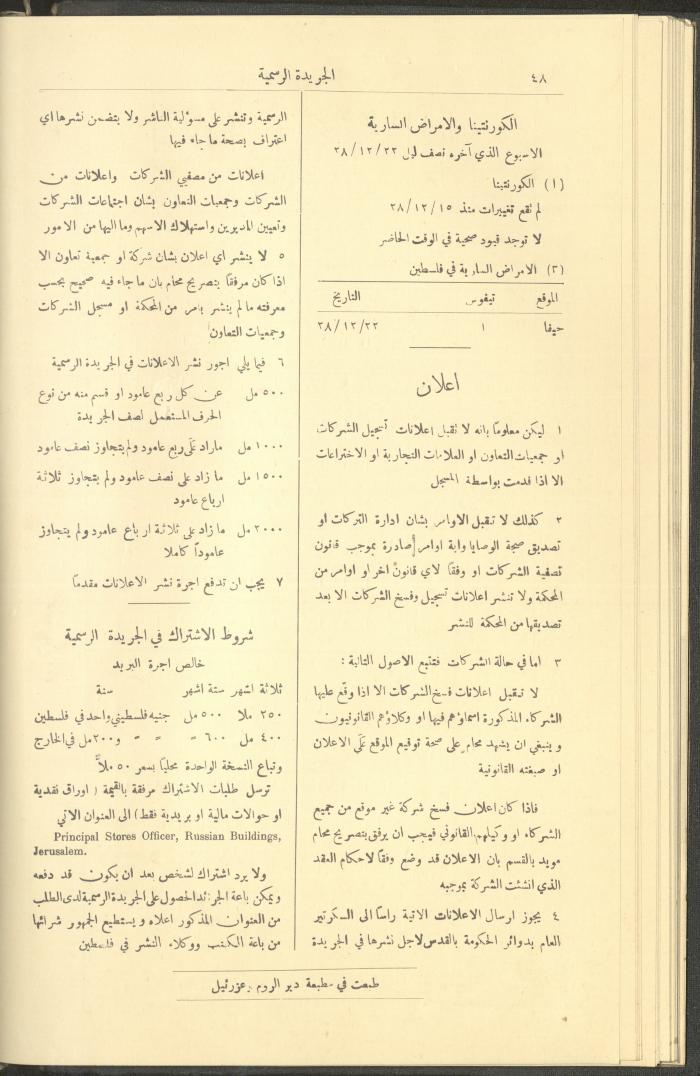 ٤٨
الجريدة الرسمية
الكورنتينا والامراض السارية
الاسبوع الذي آخره نصف ليل ٢٢/١٢/٢٨
(١) الكورنتينا
لم تقع تغييرات منذ ١٥/١٢/٢٨
لا توجد قيود صحية في الوقت الحاضر
(٢) الامراض السارية في فلسطين
الموقع تيفوس التاريخ
حيفا ١ ٢٢/١٢/٢٨
اعلان
١ ليكن معلومًا بانه لا تقبل اعلانات تسجيل الشركات
او جمعيات التعاون او العلامات التجارية او الاختراعات
الا اذا قدمت بواسطة المسجل
٢ كذلك لا تقبل الاوامر بشان ادارة التركات او
تصديق صحة الوصايا واية اوامر صادرة بموجب قانون
تصفية الشركات او وفقًا لاي قانون اخر او اوامر من
المحكمة ولا تنشر اعلانات تسجيل وفسخ الشركات الا بعد
تصديقها من المحكمة للنشر
٣ اما في حالة الشركات فتتبع الاصول التالية :
لا تقبل اعلانات فسخ الشركات الا اذا وقع عليها
الشركاء المذكورة اسماؤهم فيها او وكلاؤهم القانونيون
وينبغي ان يشهد محام على صحة توقيع الموقع على الاعلان
او صبغته القانونية
فاذا كان اعلان فسخ شركة غير موقع من جميع
الشركاء او وكيلهم القانوني فيجب ان يرفق بتصريح محام
مويد بالقسم بان الاعلان قد وضع وفقًا لاحكام العقد
الذي انشئت الشركة بموجبه
٤ يجوز ارسال الاعلانات الاتية راسًا الى السكرتير
العام بدوائر الحكومة بالقدس لاجل نشرها في الجريدة
الرسمية وتنشر على مسؤلية الناشر ولا يتضمن نشرها اي
اعتراف بصحة ما جاء فيها
اعلانات من مصفيي الشركات واعلانات من
الشركات وجمعيات التعاون بشان اجتماعات الشركات
وتعيين المديرين واستهلاك الاسهم وما اليها من الامور
٥ لا ينشر اي اعلان بشان شركة او جمعية تعاون الا
اذا كان مرفقًا بتصريح محام بان ما جاء فيه صحيح بحسب
معرفته ما لم ينشر بامر من المحكمة او مسجل الشركات
وجمعيات التعاون
٦ فيما يلي اجور نشر الاعلانات في الجريدة الرسمية
٥٠٠ مل عن كل ربع عامود او قسم منه من نوع
الحرف المستعمل لصف الجريدة
١٠٠٠ مل ما زاد على ربع عامود ولم يتجاوز نصف عامود
١٥٠٠ مل ما زاد على نصف عامود ولم يتجاوز ثلاثة
ارباع عامود
٢٠٠٠ مل ما زاد على ثلاثة ارباع عامود ولم يتجاوز
عامودًا كاملا
٧ يجب ان تدفع اجرة نشر الاعلانات مقدمًا
شروط الاشتراك في الجريدة الرسمية
خالص اجرة البريد
ثلاثة اشهر ستة اشهر سنة
٢٥٠ ملا ٥٠٠ مل جنيه فلسطيني واحد في فلسطين
٤٠٠ مل ٦٠٠ " " " و٢٠٠ مل في الخارج
وتباع النسخة الواحدة محليًا بسعر ٥٠ ملاً
ترسل طلبات الاشتراك مرفقة بالقيمة (اوراق نقدية
او حوالات مالية او بريدية فقط) الى العنوان الاتي
Principal Stores Officer, Russian Buildings,
Jerusalem.
ولا يرد اشتراك لشخص بعد ان يكون قد دفعه
ويمكن باعة الجرائد الحصول على الجريدة الرسمية لدى الطلب
من العنوان المذكور اعلاه ويستطيع الجمهور شرائها
من باعة الكتب ووكلاء النشر في فلسطين
طبعت في مطبعة دير الروم وعزرئيل